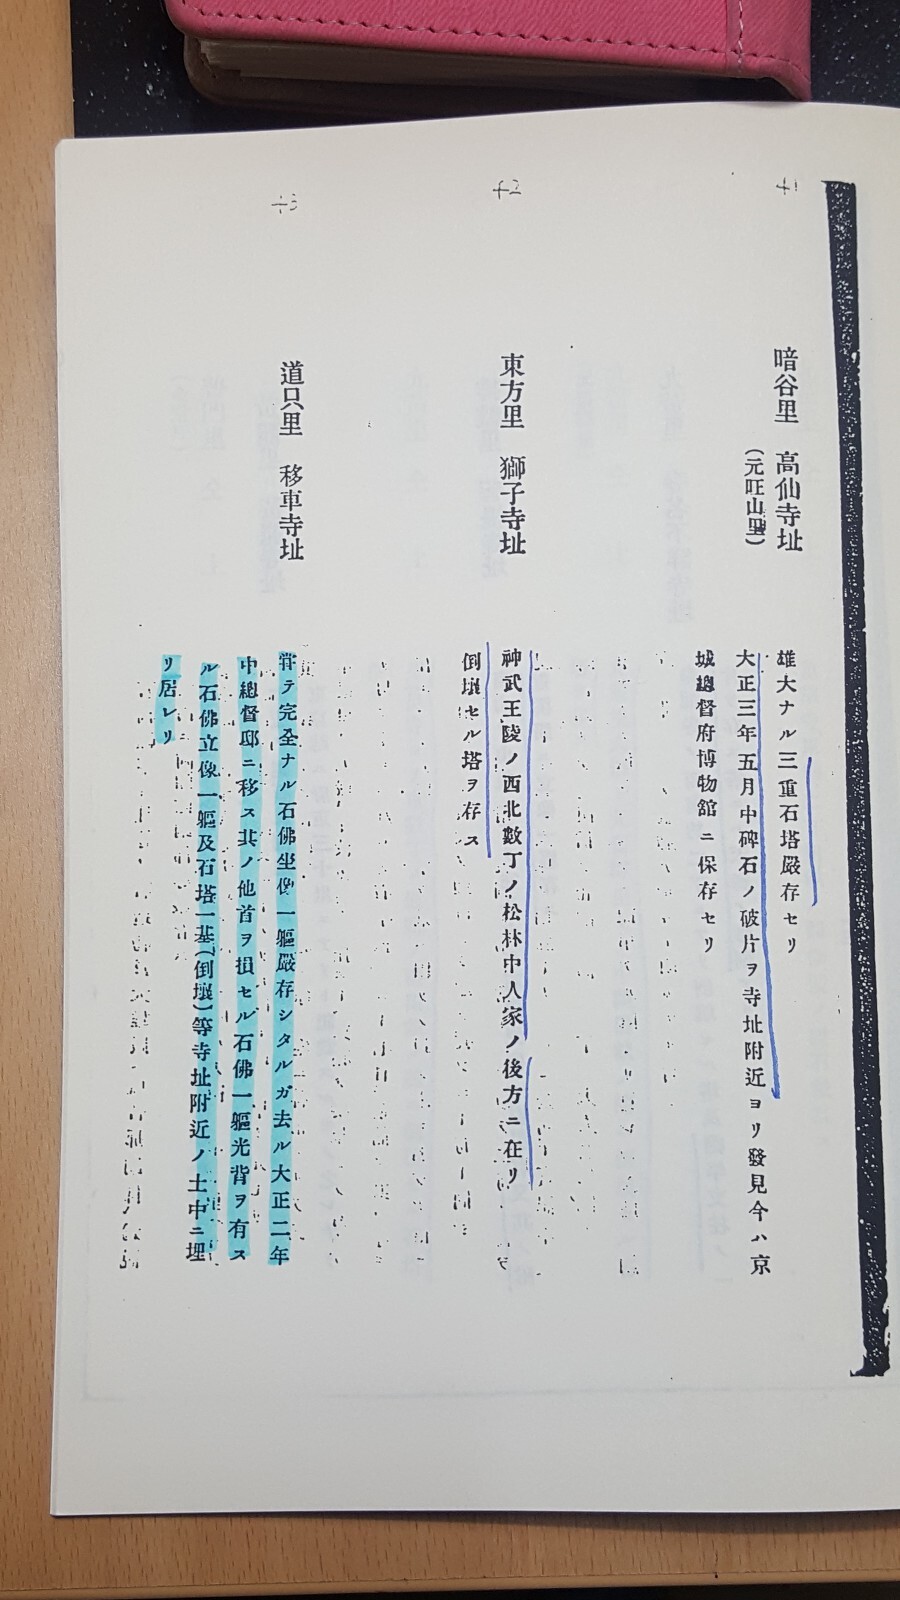 41
暗谷里　高仙寺址
(元旺山里)
雄大ナル三重石塔嚴存セリ
大正三年五月中碑石ノ破片ヲ寺址附近ヨリ發見今ハ京
城總督府博物館ニ保存セリ
42
東方里　獅子寺址
神武王陵ノ西北數丁ノ松林中人家ノ後方ニ在リ
倒壞セル塔ヲ存ス
43
道只里　移車寺址
甞テ完全ナル石佛坐像一軀嚴存シタルガ去ル大正二年
中總督邸ニ移ス其ノ他首ヲ損セル石佛一軀光背ヲ有ス
ル石佛立像一軀及石塔一基(倒壞)等寺址附近ノ土中ニ埋
リ居レリ